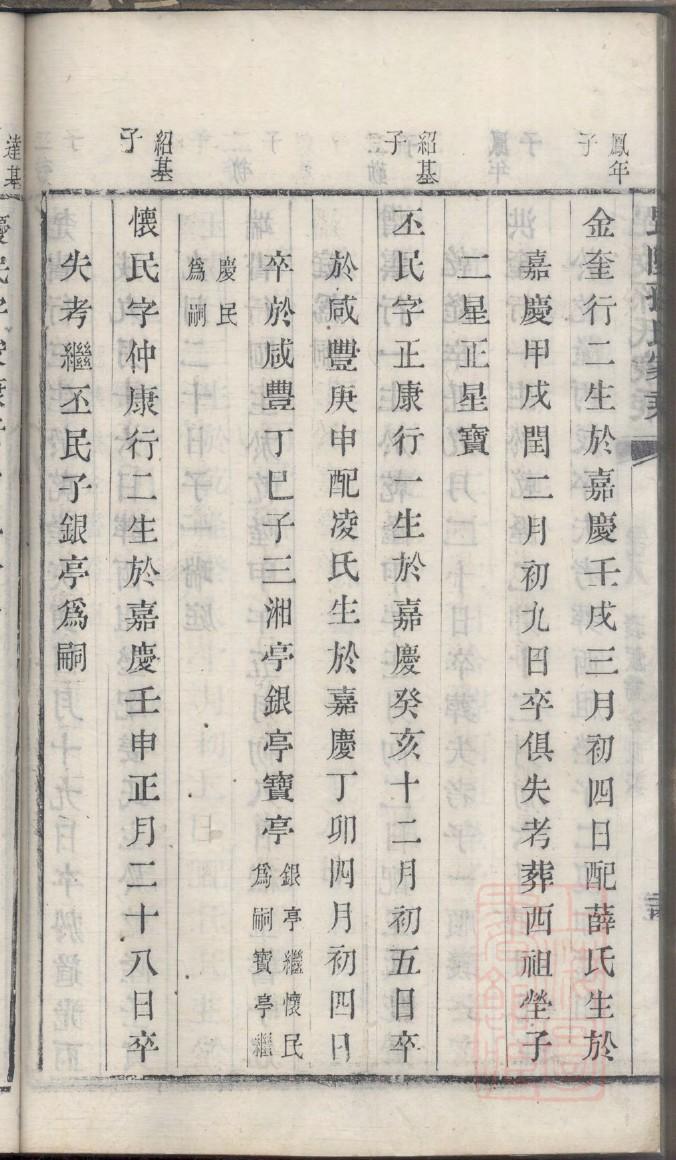 鳳年
子
金奎行二生於嘉慶壬戌三月初四日配薛氏生於
嘉慶甲戌閏二月初九日卒俱失考葬西祖塋子
二星正星寶
紹基
子
丕民字正康行一生於嘉慶癸亥十二月初五日卒
於咸豐庚申配凌氏生於嘉慶丁卯四月初四日
卒於咸豐丁巳子三湘亭銀亭寶亭
銀亭繼懷民
爲嗣寶亭繼
慶民
爲嗣
紹基
子
懷民字仲康行二生於嘉慶壬申正月二十八日卒
失考繼丕民子銀亭爲嗣
達基